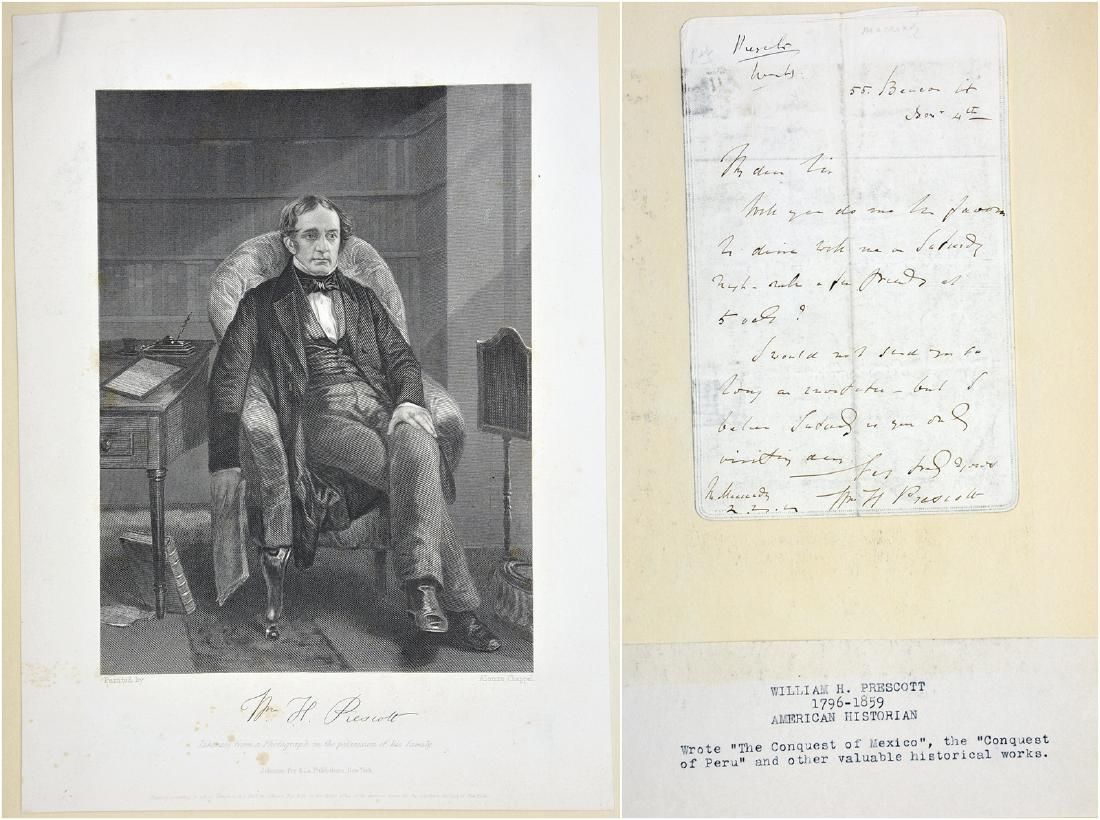 Painted by Alonzo Chappel
Wm H. Prescott
Likeness from a Photograph in the possession of his family.
Johnson, Fry & Co. Publishers, New York
55. Beacon St
4th
My dear Sir
Will you do me the favor
to dine with me on Saturday
next with a few friends at
5 o'clk ?
I would not send you so
long an invitation - but I
believe Saturday is your only
visiting day
truly yours
Wm H Prescott
WILLIAM H. PRESCOTT
1796-1859
AMERICAN HISTORIAN
Wrote "The Conquest of Mexico", the "Conquest
of Peru" and other valuable historical works.